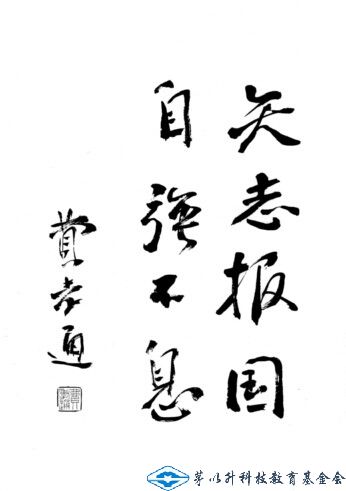 矢志报国
自強不息
费孝通
茅以升科技教育基金会